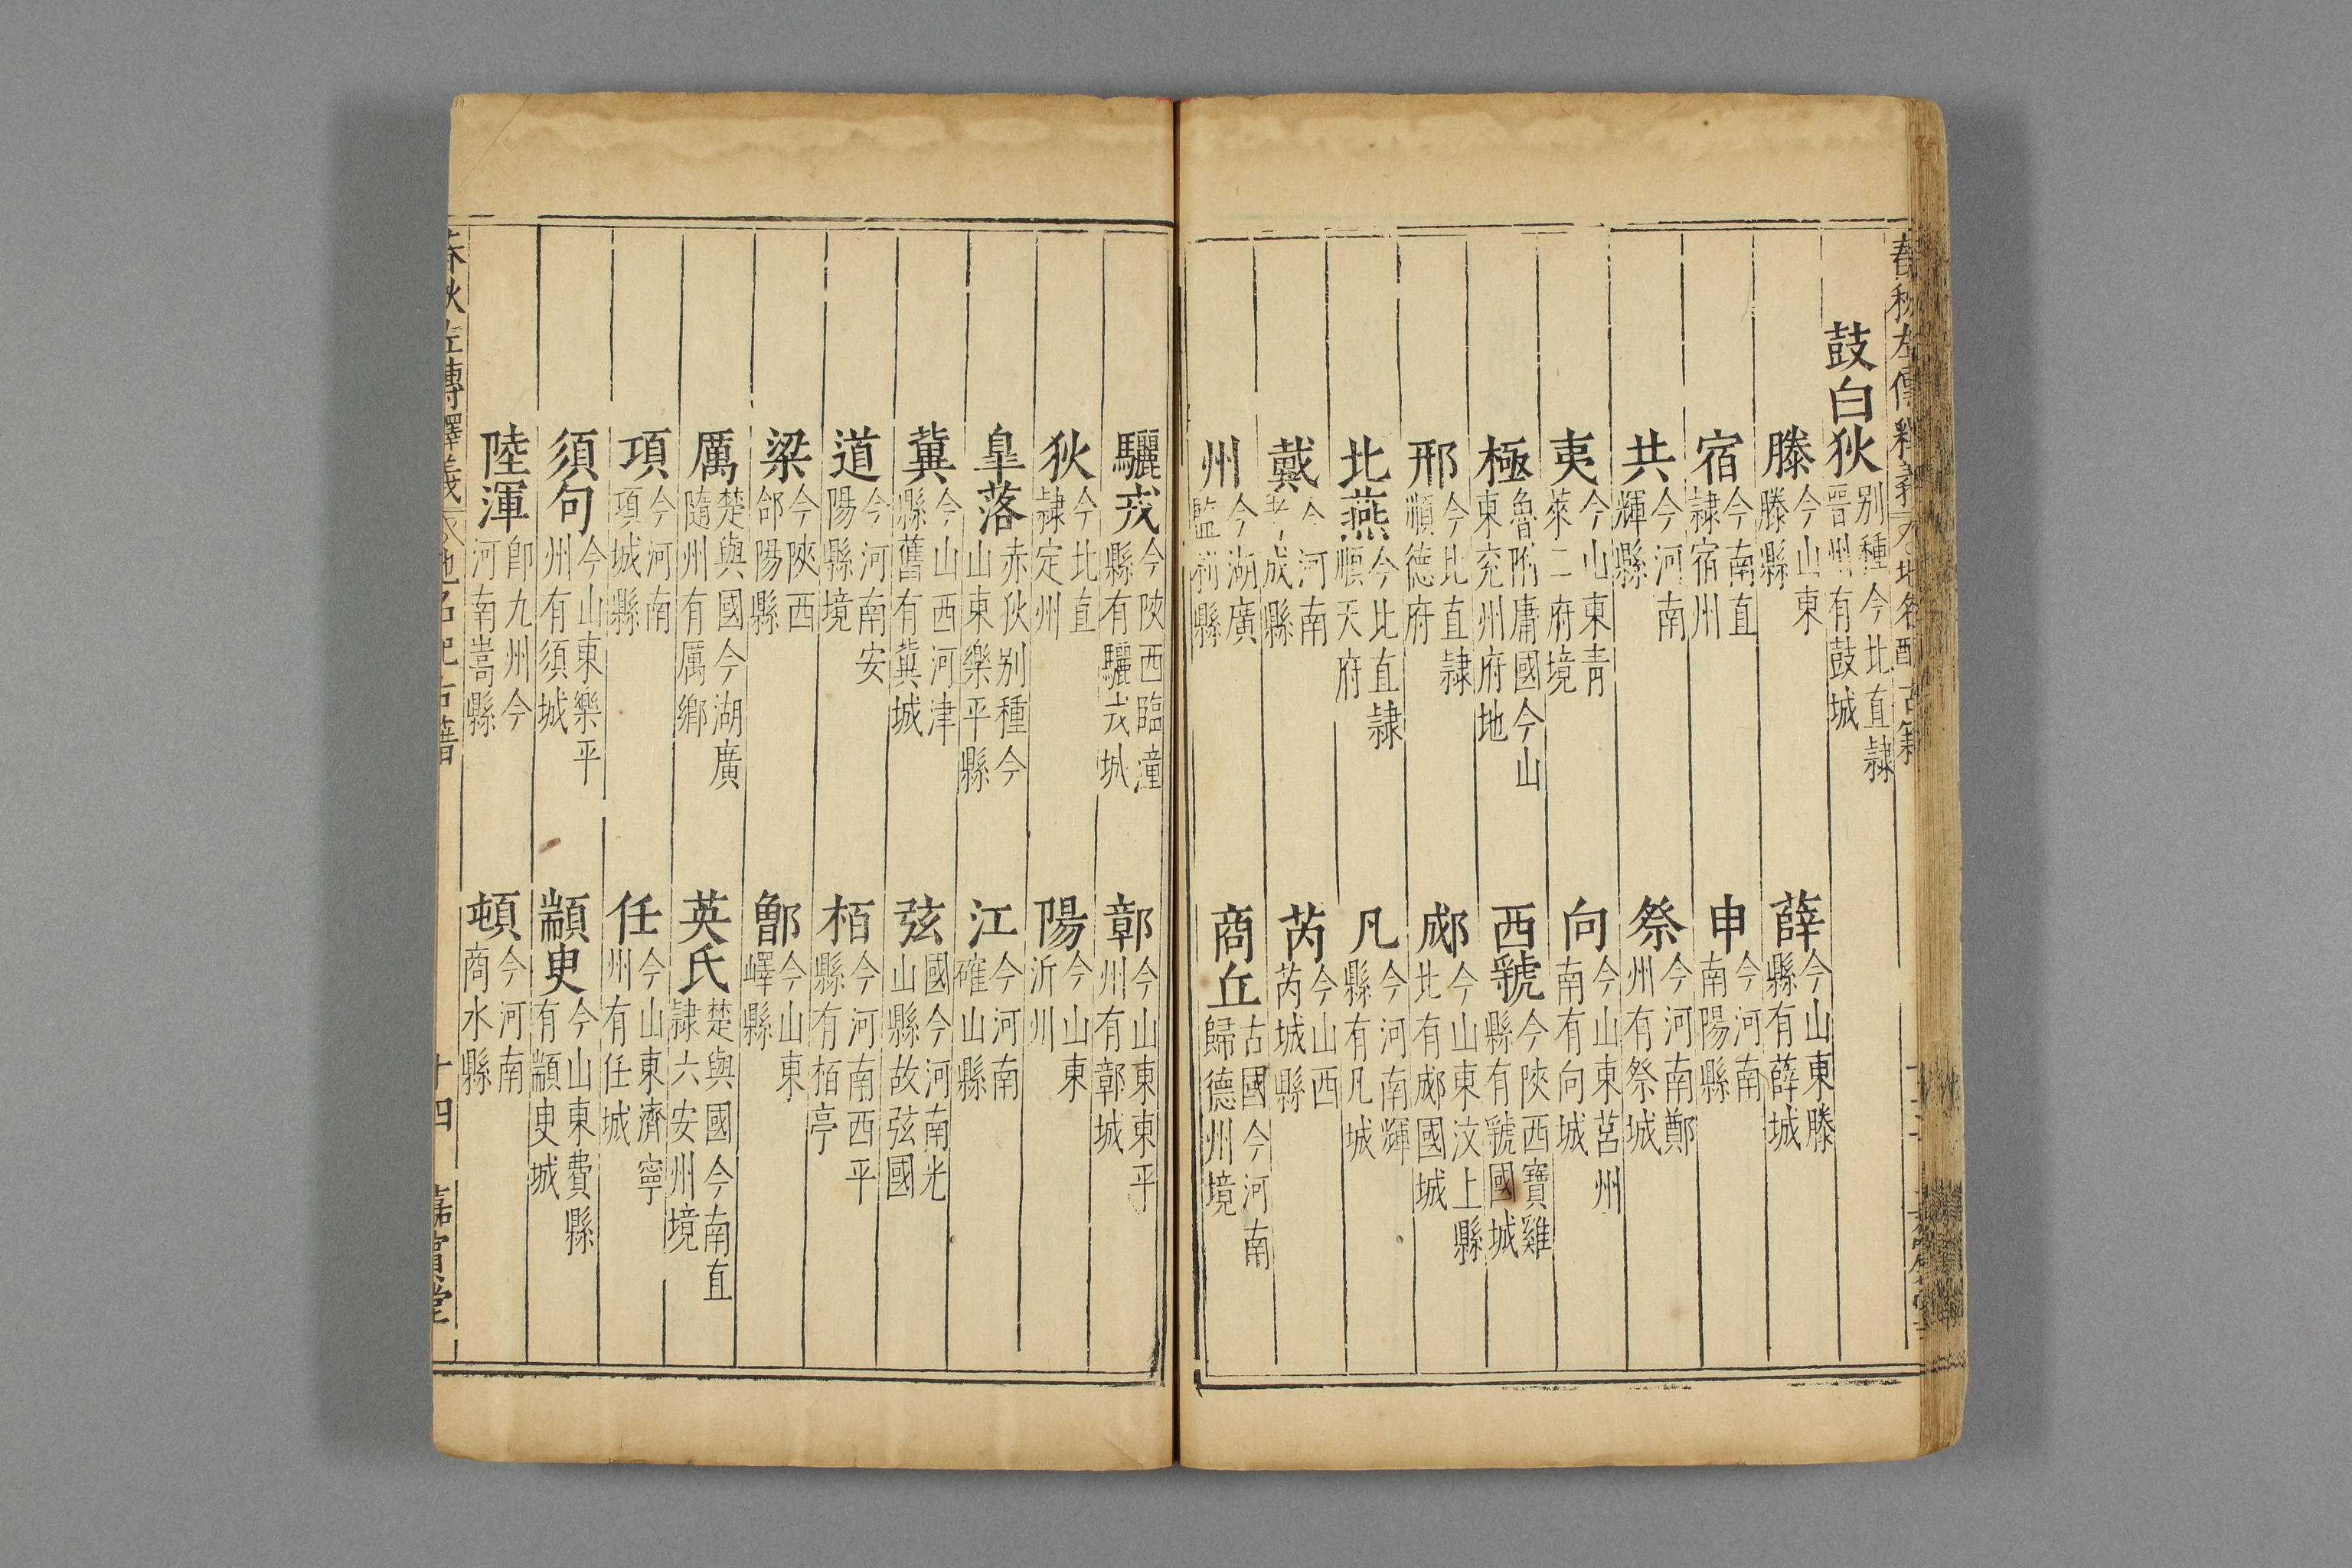 鼓白狄 别種今北直隸晉州有鼓城
滕 今山東滕縣 薛 今山東滕縣有薛城
宿 今南直隸宿州 申 今河南南陽縣
共 今河南輝縣 祭 今河南鄭州有祭城
夷 今山東青萊二府境 向 今山東莒州南有向城
極 魯附庸國今山東兖州府地 西虢 今陜西寶雞縣有虢國城
邢 今北直隸順德府 郕 今山東汶上縣北有郕國城
北燕 今北直隸順天府 凡 今河南輝縣有凡城
戴 今河南成縣 芮 今山西芮城縣
州 今湖廣監利縣 商丘 古國今河南歸德州境
驪戎 今陜西臨潼縣有驪戎城 鄣 今山東東平州有鄣城
狄 今北直隸定州 陽 今山東沂州
皐落 赤狄别種今山東樂平縣 江 今河南確山縣
冀 今山西河津縣舊有冀城 弦 國今河南光山縣故弦國
道 今河南安陽縣境 栢 今河南西平縣有栢亭
梁 今陜西郃陽縣 鄫 今山東嶧縣
厲 楚與國今湖廣隨州有厲鄉 英氏 楚與國今南直隸六安州境
項 今河南項城縣 任 今山東濟寧州有任城
須句 今山東樂平州有須城 顓臾 今山東費縣有顓臾城
陸渾 卽九州今河南嵩縣 頓 今河南商水縣
春秋左傳釋義 地名配古籍 十四 嘉賓堂